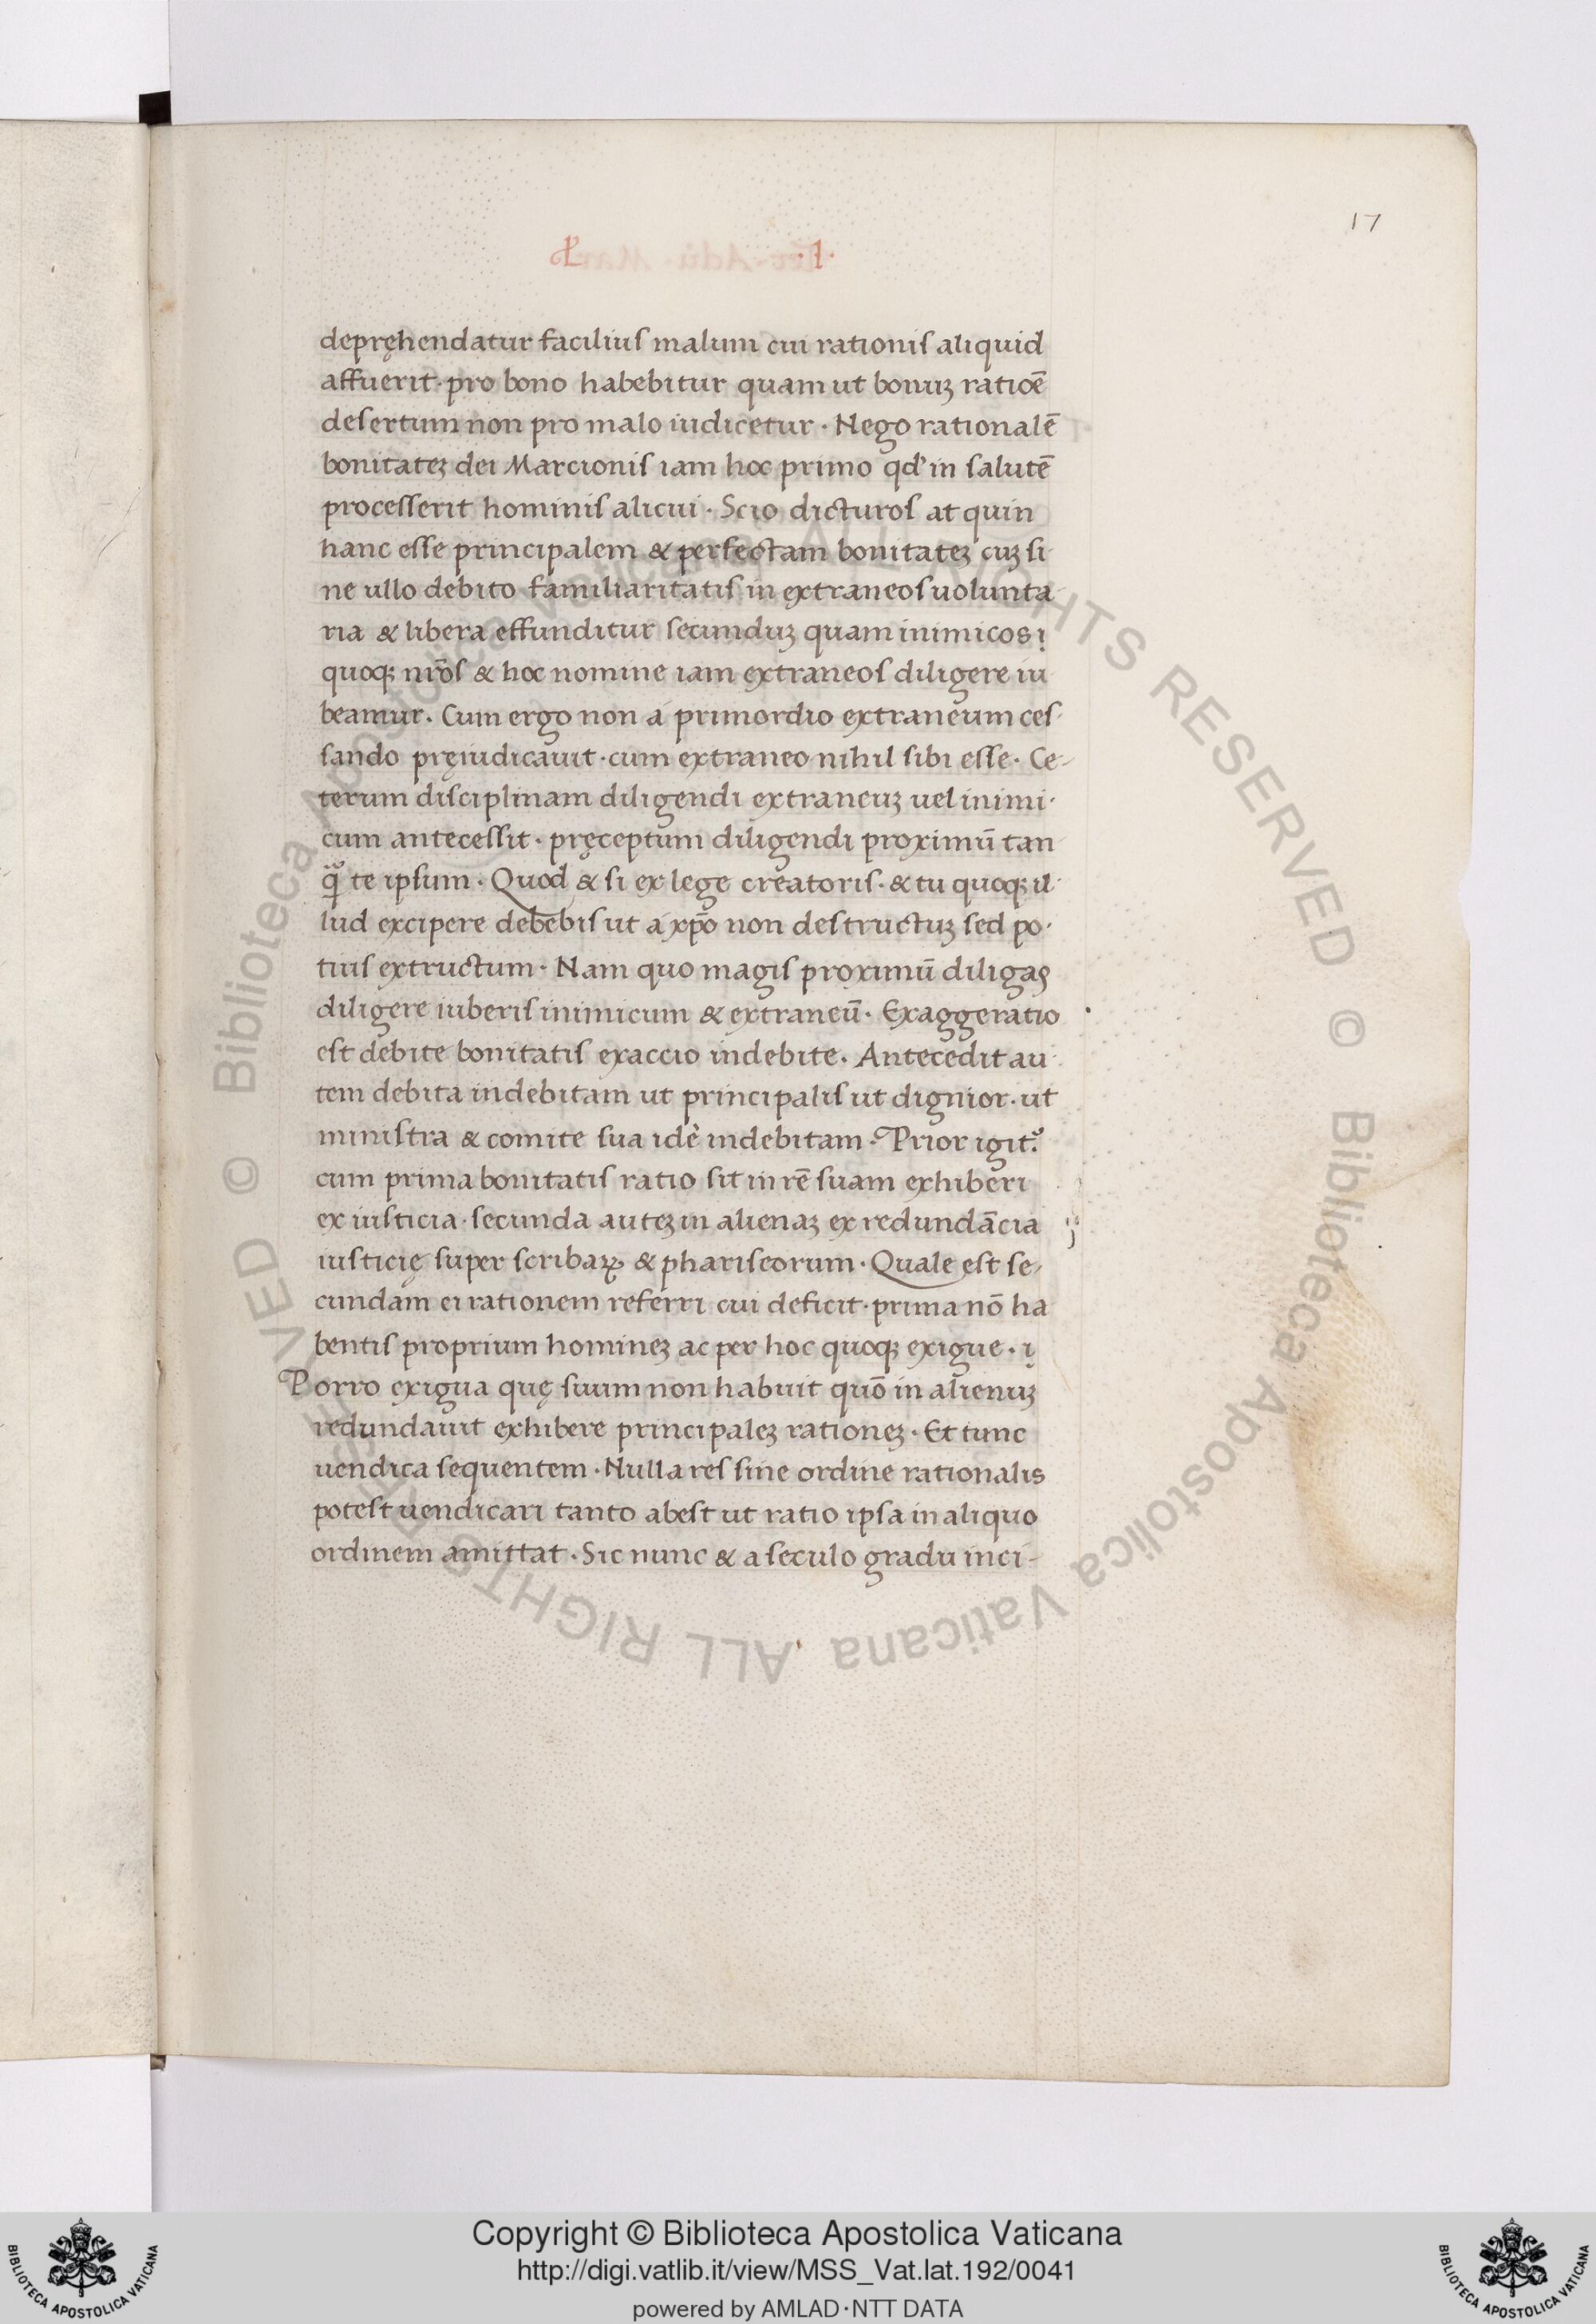 17
.1.
depręhendatur facilius malum cui rationis aliquid
affuerit · pro bono habebitur quam ut bonuȝ ratioē
desertum non pro malo iudicetur · Nego rationalē
bonitateȝ dei Marcionis iam hoc primo qđ in salutē
processerit hominis alicui · Scio dicturos at quin
hanc esse principalem & perfectam bonitateȝ cuȝ si
ne ullo debito familiaritatis in extraneos uolunta
ria & libera effunditur secunduȝ quam inimicos
quoqȝ nr̄os & hoc nomine iam extraneos diligere iu
beamur. Cum ergo non á primordio extraneum ces
sando pręiudicauit · cum extraneo nihil sibi esse · Ce-
terum disciplinam diligendi extraneuȝ uel inimi·
cum antecessit · pręceptum diligendi proximū tan
ꝙ̃ te ipsum · Quod & si ex lege creatoris · & tu quoqȝ il
lud excipere debebis ut á xp̄o non destructuȝ sed po·
tius extructum · Nam quo magis proximū diligas
diligere iuberis inimicum & extraneū · Exaggeratio
est debite bonitatis exaccio indebite. Antecedit au
tem debita indebitam ut principalis ut dignior · ut
ministra & comite sua idē indebitam · Prior igit᷑
cum prima bonitatis ratio sit in rē suam exhiberi
ex iusticia · secunda auteȝ in alienaȝ ex redundācia
iusticię super scribaꝝ & phariseorum · Quale est se-
cundam ei rationem referri cui deficit · prima nō ha
bentis proprium homineȝ ac per hoc quoqȝ exigue ·
Porro exigua quę suum non habuit quō in alienuȝ
redundauit exhibere principaleȝ rationeȝ · Et tunc
uendica sequentem · Nulla res sine ordine rationalis
potest uendicari tanto abest ut ratio ipsa in aliquo
ordinem amittat · Sic nunc & a seculo gradu inci-
© Biblioteca Apostolica Vaticana ALL RIGHTS RESERVED © Biblioteca Apostolica Vaticana ALL RIGHTS RESERVED
Copyright © Biblioteca Apostolica Vaticana
http://digi.vatlib.it/view/MSS_Vat.lat.192/0041
powered by AMLAD·NTT DATA
BIBLIOTECA APOSTOLICA VATICANA
BIBLIOTECA APOSTOLICA VATICANA